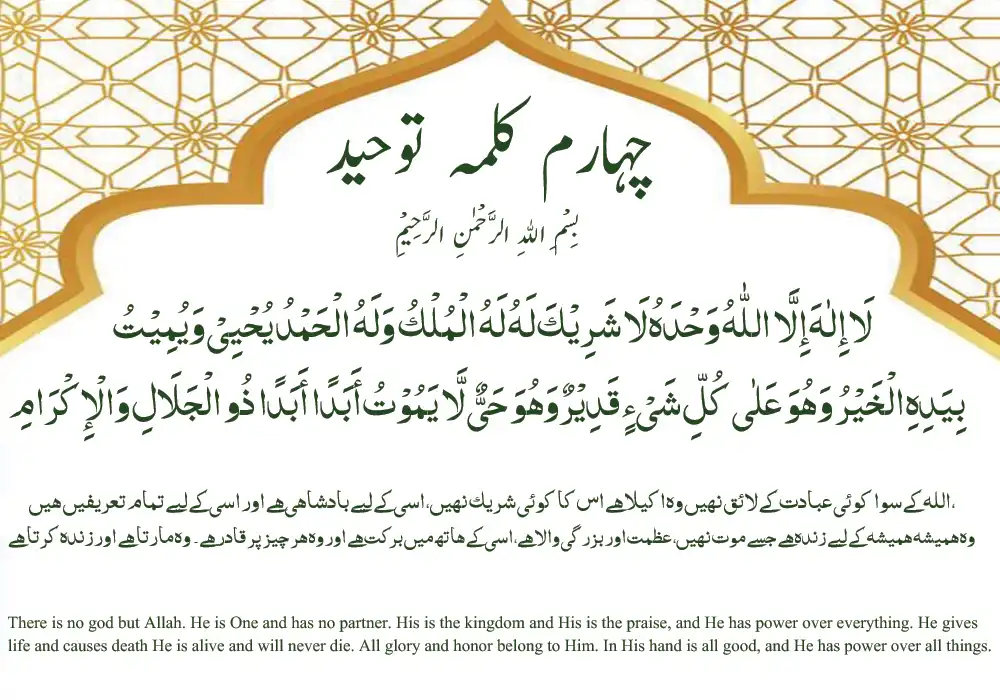 چہارم کلمہ توحید
بِسْمِ اللهِ الرَّحْمٰنِ الرَّحِيْمِ
لَا إِلٰهَ إِلَّا اللّٰهُ وَحْدَهُ لَا شَرِيْكَ لَهُ لَهُ الْمُلْكُ وَلَهُ الْحَمْدُ يُحْيِيْ وَيُمِيْتُ
بِيَدِهِ الْخَيْرُ وَهُوَ عَلٰى كُلِّ شَيْءٍ قَدِيْرٌ وَهُوَ حَيٌّ لَّا يَمُوْتُ أَبَدًا أَبَدًا ذُو الْجَلَالِ وَالْإِكْرَامِ
،الله کے سوا کوئی عبادت کے لائق نہیں وہ اکیلا ہے اس کا کوئی شریک نہیں، اسی کے لیے بادشاہی ہے اور اسی کے لیے تمام تعریفیں ہیں
وہ ہمیشہ ہمیشہ کے لیے زندہ ہے جسے موت نہیں، عظمت اور بزرگی والا ہے، اسی کے ہاتھ میں برکت ہے اور وہ ہر چیز پر قادر ہے۔ وہ مارتا ہے اور زندہ کرتا ہے
There is no god but Allah. He is One and has no partner. His is the kingdom and His is the praise, and He has power over everything. He gives
life and causes death He is alive and will never die. All glory and honor belong to Him. In His hand is all good, and He has power over all things.